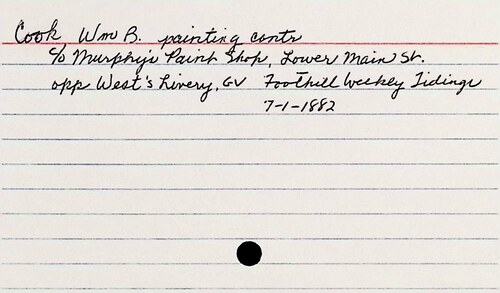 Cook Wm B. painting contr
c/o Murphy's Paint Shop, Lower Main St.
opp West's Livery, GV Foothill Weekey Tidings
7-1-1882